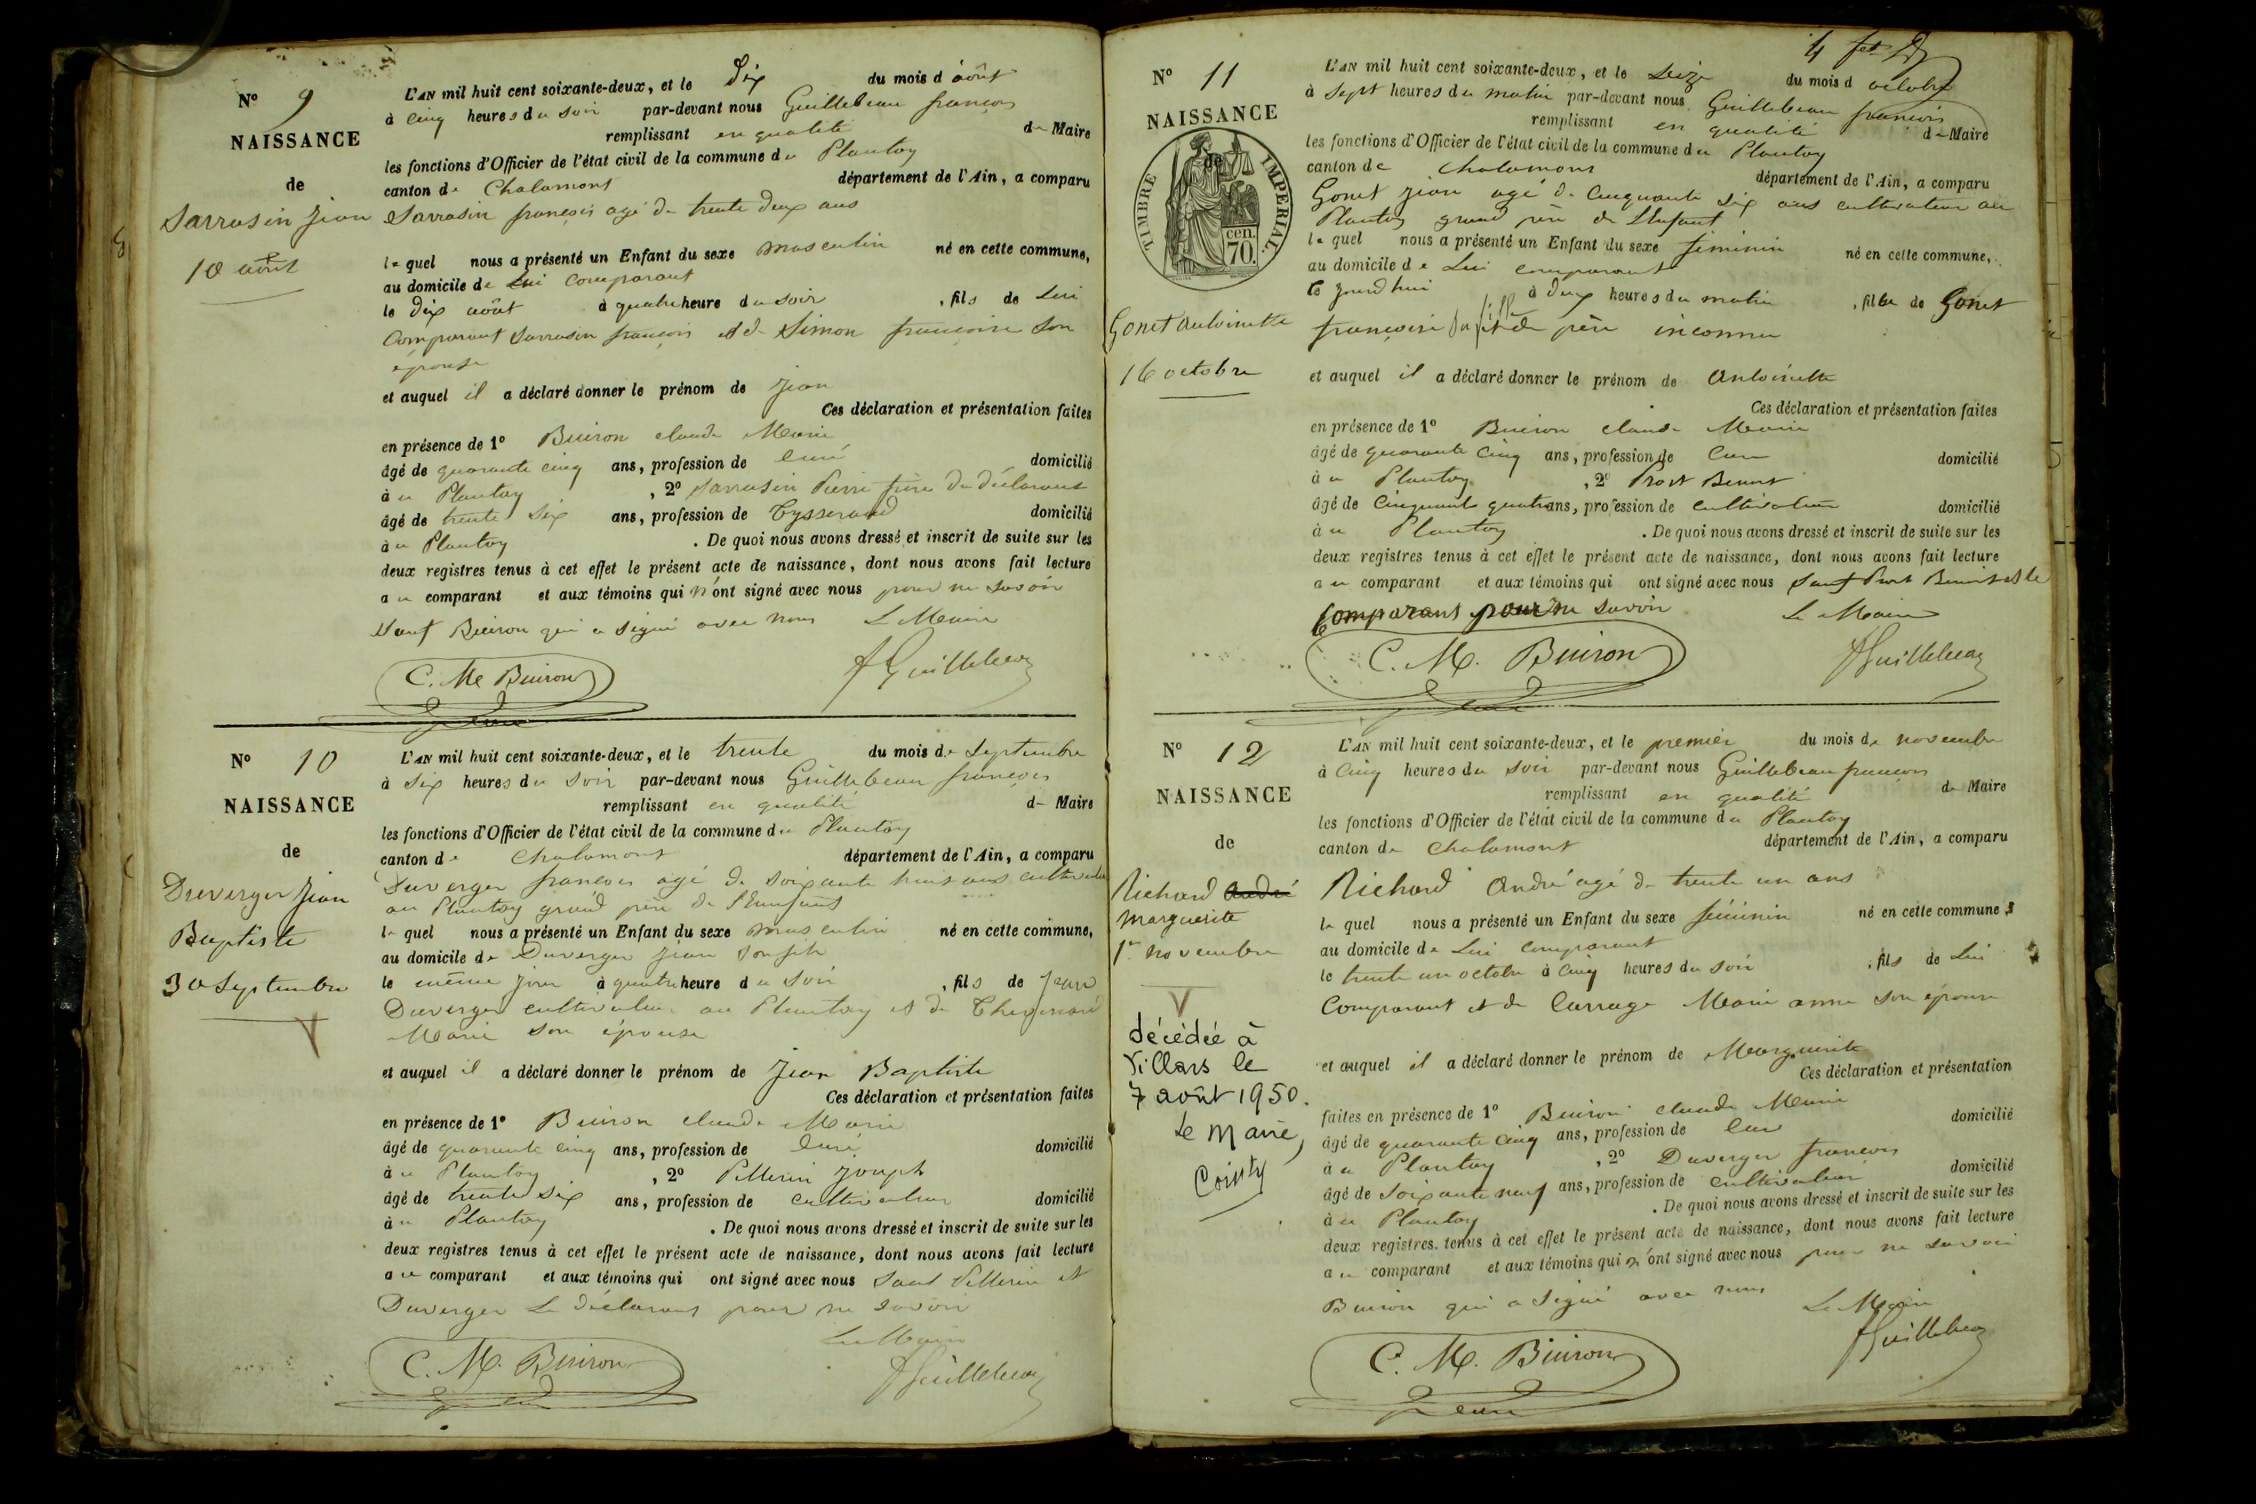 N° 9
NAISSANCE
de
Sarrasin Jean
10 août
L'AN mil huit cent soixante-deux, et le dix du mois d août
à cinq heures du soir par-devant nous Guillebeau françois
remplissant en qualité de Maire
les fonctions d'Officier de l'état civil de la commune du Plantay
canton de Chalamont département de l'Ain, a comparu
Sarrasin françois agé de trente deux ans
le quel nous a présenté un Enfant du sexe masculin né en cette commune,
au domicile de Lui comparant
le dix août à quatre heure du soir , fils de Lui
Comparant Sarrasin françois et de Simon françoise son
épouse
et auquel il a déclaré donner le prénom de Jean
Ces déclaration et présentation faites
en présence de 1° Buiron claude Marie
âgé de quarante cinq ans, profession de Curé domicilié
à u Plantay , 2° Sarrasin Pierre frère du déclarant
âgé de trente six ans, profession de Tysserand domicilié
à u Plantay . De quoi nous avons dressé et inscrit de suite sur les
deux registres tenus à cet effet le présent acte de naissance, dont nous avons fait lecture
a u comparant et aux témoins qui n'ont signé avec nous pour ne savoir
Sauf Buiron qui a signé avec nous Le Maire
C. M. Buiron
Guillebeau
N° 10
NAISSANCE
de
Duverger Jean
Baptiste
30 Septembre
L'AN mil huit cent soixante-deux, et le trente du mois de Septembre
à six heures du soir par-devant nous Guillebeau françois
remplissant en qualité de Maire
les fonctions d'Officier de l'état civil de la commune du Plantay
canton de Chalamont département de l'Ain, a comparu
Duverger francois agé de soixante huit ans cultivateur
au Plantay grand père de l'Enfant
le quel nous a présenté un Enfant du sexe masculin né en cette commune,
au domicile de Duverger Jean son fils
le même jour à quatre heure du soir , fils de Jean
Duverger cultivateur au Plantay et de
Marie son épouse
et auquel il a déclaré donner le prénom de Jean Baptiste
Ces déclaration et présentation faites
en présence de 1° Buiron claude Marie
âgé de quarante cinq ans, profession de Curé domicilié
à u Plantay , 2° Pellerin Joseph
âgé de trente six ans, profession de cultivateur domicilié
à u Plantay . De quoi nous avons dressé et inscrit de suite sur les
deux registres tenus à cet effet le présent acte de naissance, dont nous avons fait lecture
a u comparant et aux témoins qui ont signé avec nous Sauf Pellerin et
Duverger Le déclarant pour ne savoir
Le Maire
C. M. Buiron
Guillebeau
N° 11
NAISSANCE
de
TIMBRE IMPERIAL.
70 cen.
Gonet Antoinette
16 octobre
L'AN mil huit cent soixante-deux, et le Seize du mois d octobre
à sept heures du matin par-devant nous Guillebeau françois
remplissant en qualité de Maire
les fonctions d'Officier de l'état civil de la commune du Plantay
canton de Chalamont département de l'Ain, a comparu
Gonet Jean agé de Cinquante six ans cultivateur au
Plantay grand père de L'enfant
le quel nous a présenté un Enfant du sexe féminin né en cette commune,
au domicile de Lui comparant
le jourd'hui à deux heures du matin , fille de Gonet
françoise fille et de père inconnu
et auquel il a déclaré donner le prénom de Antoinette
Ces déclaration et présentation faites
en présence de 1° Buiron claude Marie
âgé de quarante cinq ans, profession de Curé domicilié
à u Plantay , 2° Prost Benoit
âgé de Cinquante quatre ans, profession de cultivateur domicilié
à u Plantay . De quoi nous avons dressé et inscrit de suite sur les
deux registres tenus à cet effet le présent acte de naissance, dont nous avons fait lecture
a u comparant et aux témoins qui ont signé avec nous Sauf Prost Benoit et le
Comparant pour ne savoir
Le Maire
C. M. Buiron
Guillebeau
N° 12
NAISSANCE
de
Richard André
Marguerite
1er novembre
décédée à
Villars le
7 août 1950.
Le Maire,
L'AN mil huit cent soixante-deux, et le premier du mois de novembre
à Cinq heures du soir par-devant nous Guillebeau françois
remplissant en qualité de Maire
les fonctions d'Officier de l'état civil de la commune du Plantay
canton de Chalamont département de l'Ain, a comparu
Richard André agé de trente un ans
le quel nous a présenté un Enfant du sexe féminin né en cette commune,
au domicile de Lui comparant
le trente un octobre à Cinq heures du soir , fils de Lui
Comparant et de Carrage Marie anne son épouse
et auquel il a déclaré donner le prénom de Marguerite
Ces déclaration et présentation
faites en présence de 1° Buiron claude Marie
âgé de quarante cinq ans, profession de Curé domicilié
à u Plantay , 2° Duverger francois
âgé de soixante neuf ans, profession de cultivateur domicilié
à u Plantay . De quoi nous avons dressé et inscrit de suite sur les
deux registres tenus à cet effet le présent acte de naissance, dont nous avons fait lecture
a u comparant et aux témoins qui n'ont signé avec nous pour ne savoir
Buiron qui a signé avec nous
Le Maire
C. M. Buiron
Guillebeau